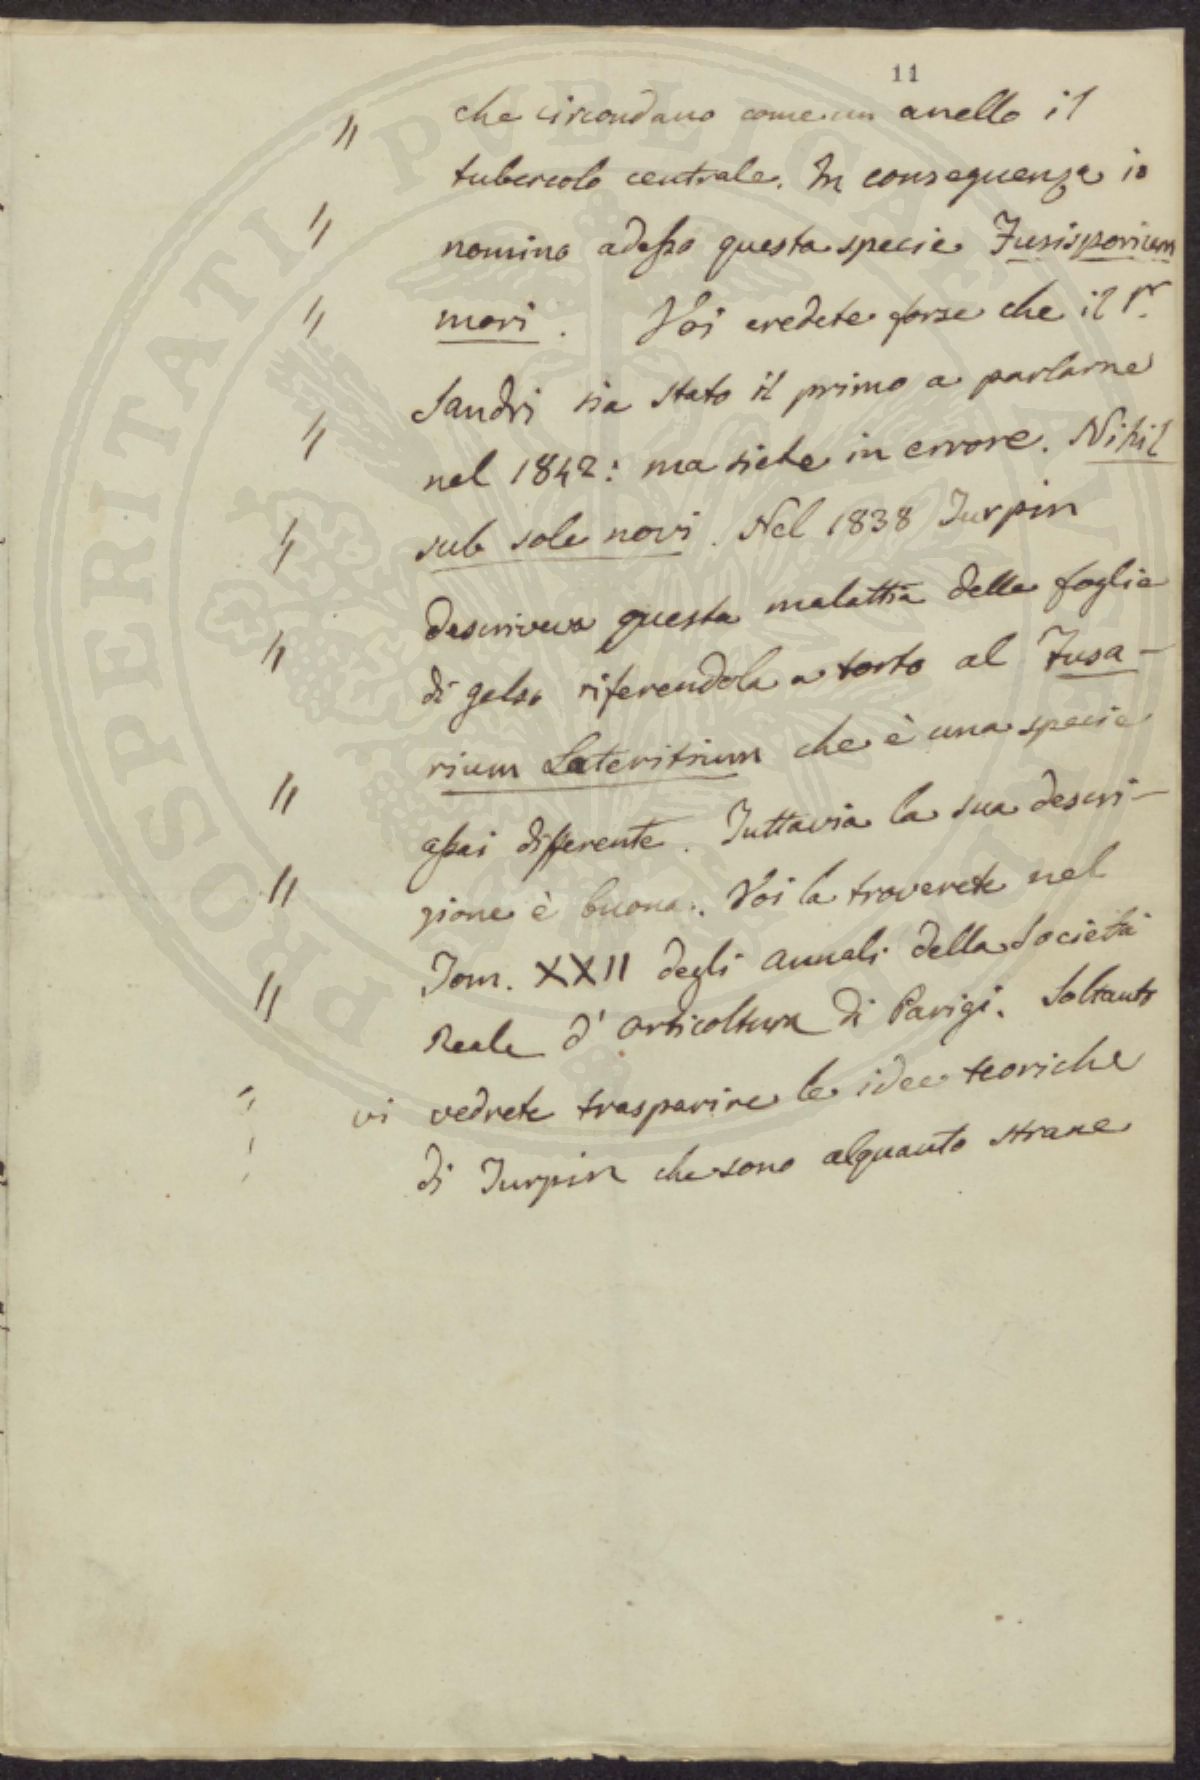 11
" che circondano come un anello il
tubercolo centrale. In conseguenza io
" nomino adesso questa specie Fusisporium
" mori. Voi credete forse che il Sr.
" Sandri sia stato il primo a parlarne
nel 1842: ma siete in errore. Nihil
" sub sole novi. Nel 1838 Turpin
" descriveva questa malattia delle foglie
di gelso riferendola a torto al Fusa-
rium Lateritium che è una specie
" assai differente. Tuttavia la sua descri-
" zione è buona. Voi la troverete nel
" Tom. XXII degli annali della Società
Reale d'orticoltura di Parigi. Soltanto
" vi vedrete trasparire le idee teoriche
di Turpin che sono alquanto strane
PROSPERITATI PUBLICAE AUGENDAE